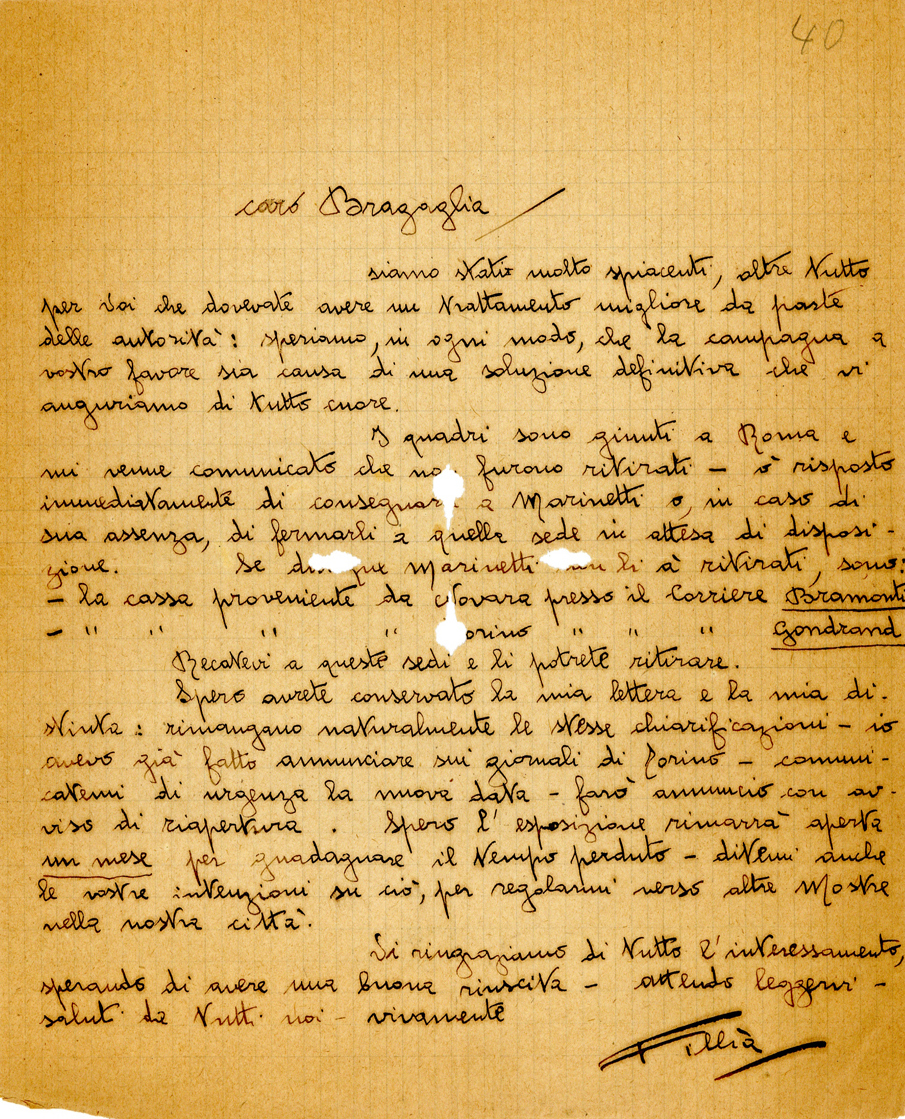 40
caro Bragaglia
siamo stati molto spiacenti, oltre tutto
per voi che dovevate avere un trattamento migliore da parte
delle autorità: speriamo, in ogni modo, che la campagna a
vostro favore sia causa di una soluzione definitiva che vi
auguriamo di tutto cuore.
I quadri sono giunti a Roma e
mi venne comunicato che non furono ritirati - ò risposto
immediatamente di consegnarli a Marinetti o, in caso di
sua assenza, di fermarli a quella sede in attesa di disposi-
zione. Se dunque Marinetti non li à ritirati, sono:
- la cassa proveniente da Novara presso il Corriere Bramonti
- " " " " Torino " " " Gondrand
Recatevi a queste sedi e li potrete ritirare.
Spero avrete conservato la mia lettera e la mia di-
stinta: rimangano naturalmente le stesse chiarificazioni - io
avevo già fatto annunciare sui giornali di Torino - comuni-
catemi di urgenza la nuova data - farò annuncio con av-
viso di riapertura. Spero l'esposizione rimarrà aperta
un mese per guadagnare il tempo perduto - ditemi anche
le vostre intenzioni su ciò, per regolarmi verso altre Mostre
nella nostra città.
Vi ringraziamo di tutto l'interessamento,
sperando di avere una buona riuscita - attendo leggervi -
saluti da tutti noi - vivamente
Fillià